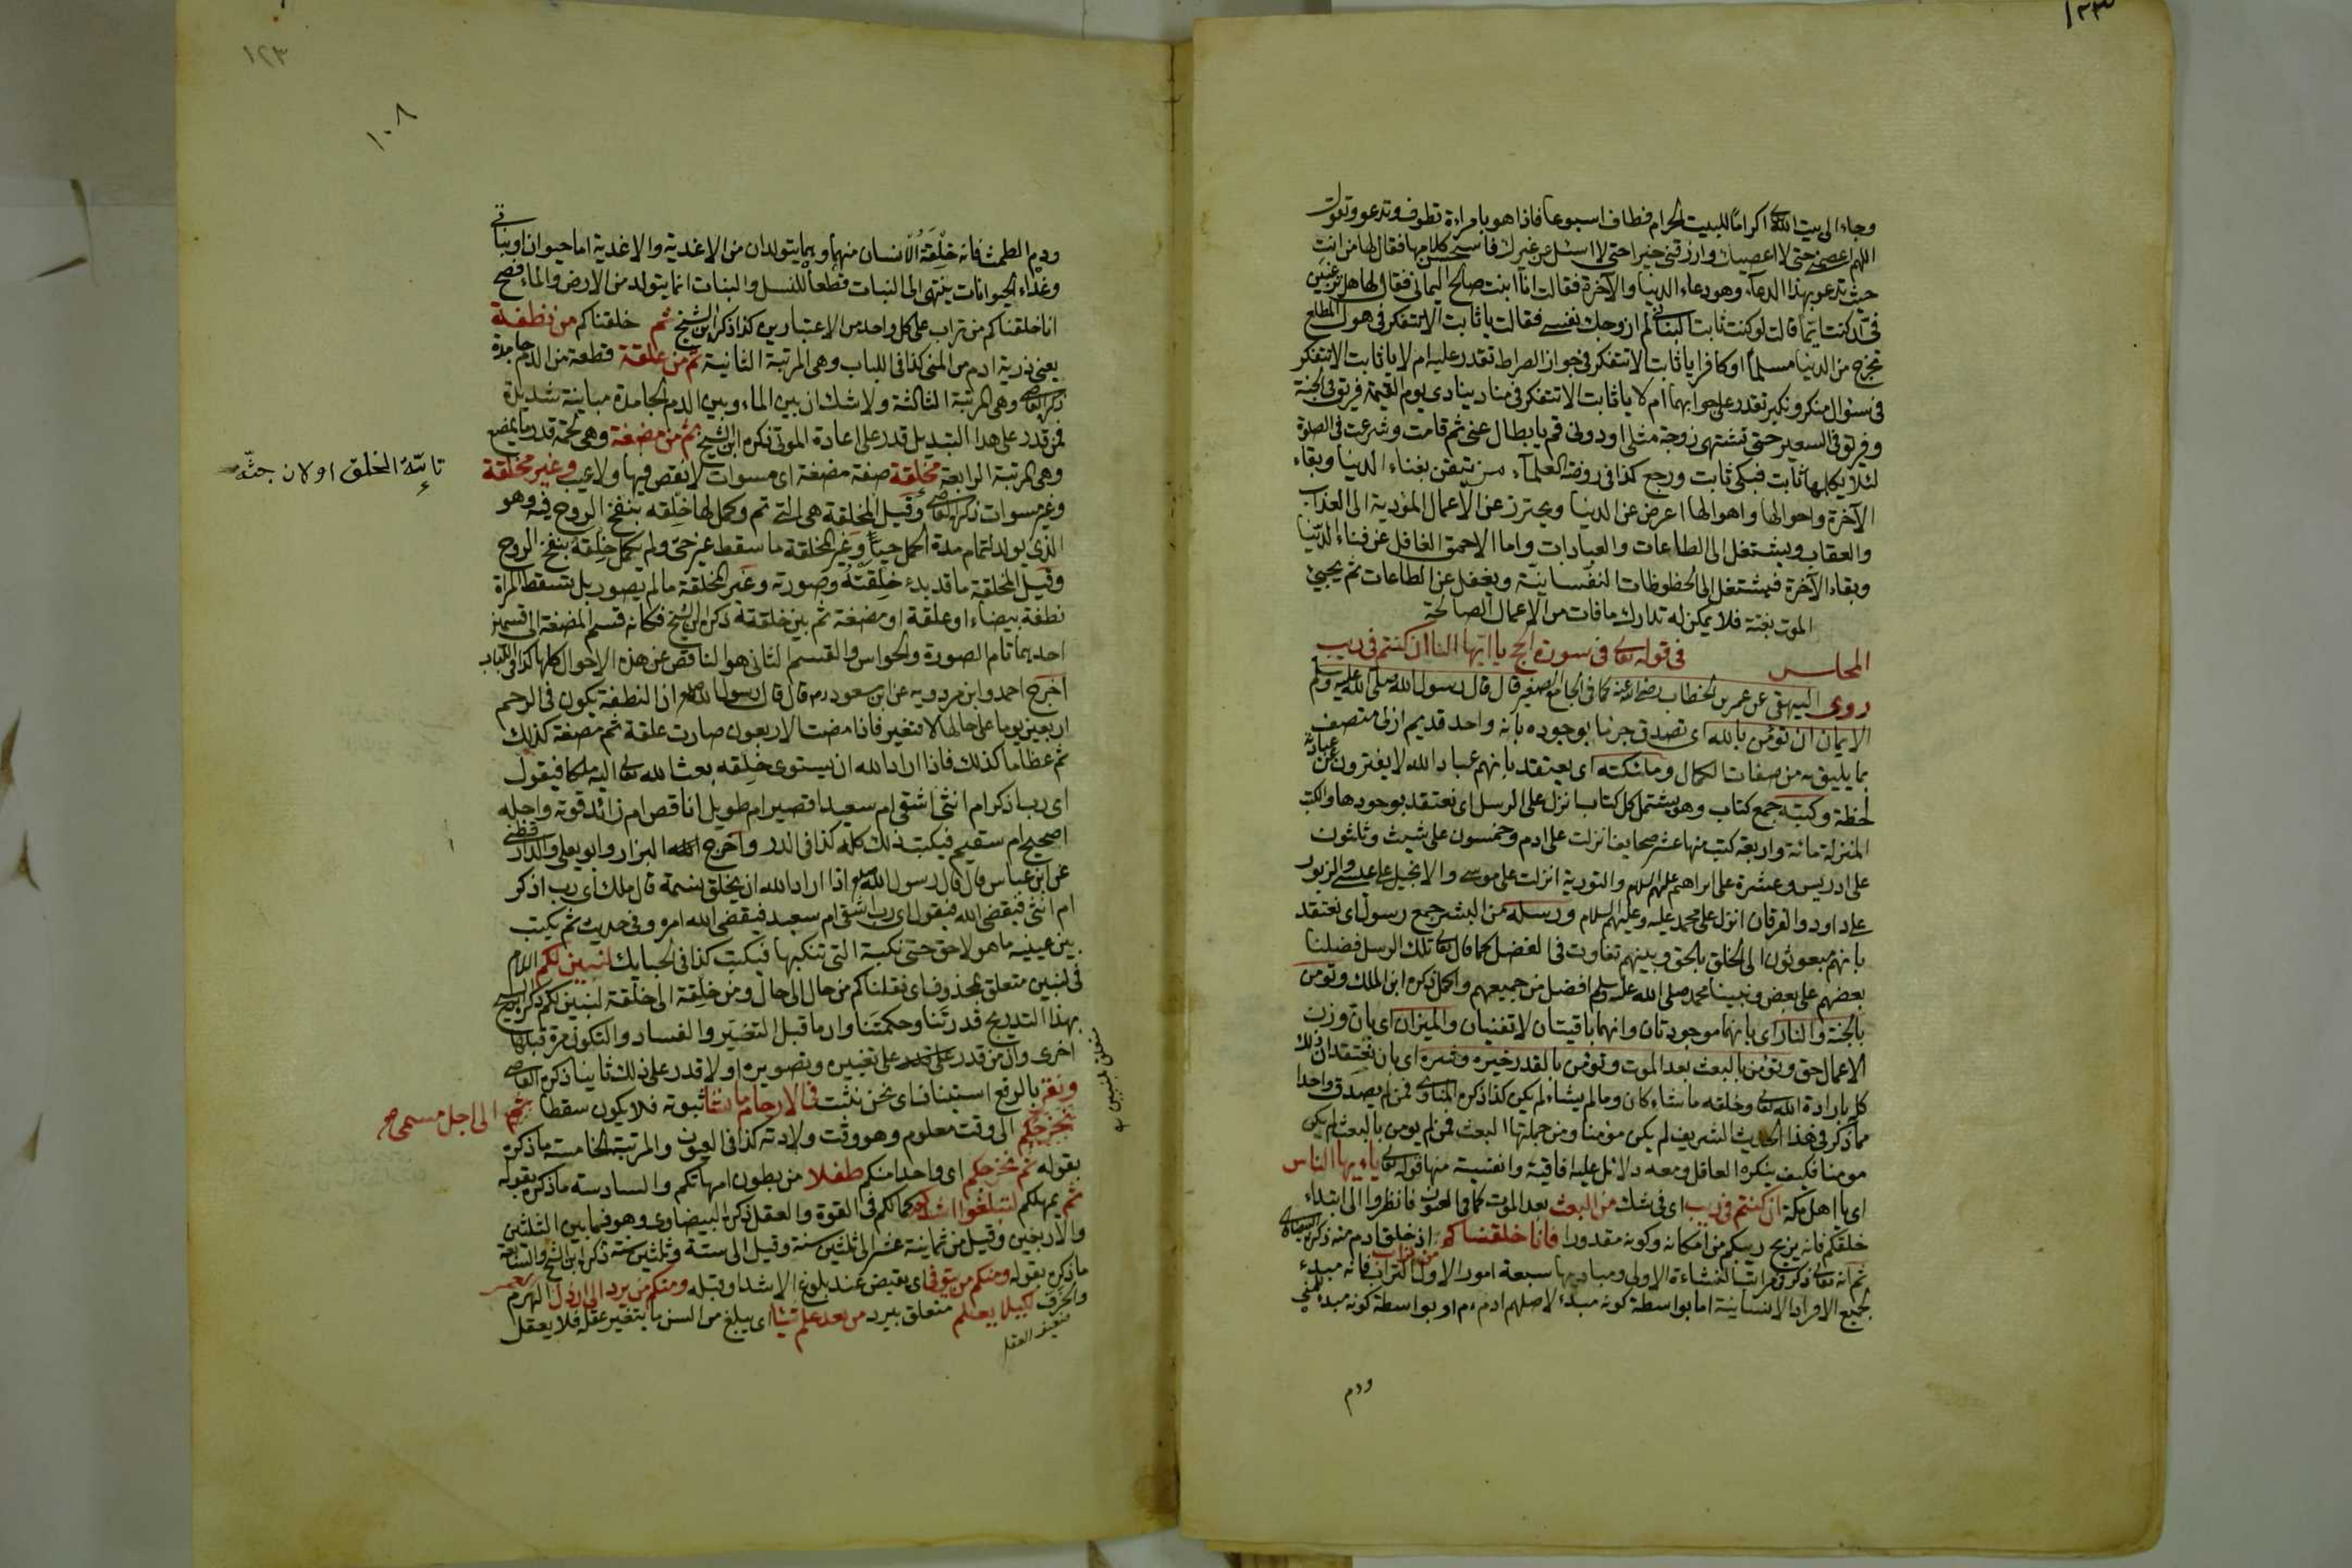 وجاء الى بيت الله اكراما للبيت الحرام فطاف اسبوعا فاذا هو بامراءة تطوف وتدعو وتقول
اللهم اعصمني حتى لا اعصيك وارزقني خيرا حتى لا اسئل من غيرك فاستحسن كلامها فقال لها من انت
حيث تدعو بهذا الدعاء وهو دعاء الدنيا والآخرة فقالت انا ابنت صالح اليماني فقال لها هل ترغبين
فيّ ان كنت ايّما قالت لو كنت ثابت البناني لم ازوجك نفسي فقالت يا ثابت الا تتفكر في هول المطلع
تخرج من الدنيا مسلما او كافرا يا ثابت الا تتفكر في جواز الصراط تقدر عليه ام لا يا ثابت الا تتفكر
في سئوال منكر ونكير تقدر على جوابهما ام لا يا ثابت الا تتفكر في مناد ينادي يوم القيمة فريق في الجنة
وفريق في السعير حتى تشتهي زوجة مثلى او دوني قم يا بطال عني ثم قامت وشرعت في الصلوة
لئلا يكلمها ثابت فبكى ثابت ورجع كذا في روضة العلماء من تيقن بفناء الدنيا وبقاء
الآخرة واحوالها واهوالها اعرض عن الدنيا ويحترز عن الأعمال المؤدية الى العذاب
والعقاب ويشتغل الى الطاعات والعبادات واما الاحمق الغافل عن فناء الدنيا
وبقاء الآخرة فيشتغل الى الحظوظات النفسانية ويغفل عن الطاعات ثم يجيئ
الموت بغتة فلا يمكن له تدارك ما فات من الاعمال الصالحة
المجلس في قوله تعالى في سورة الحج يا ايها الناس ان كنتم في ريب
روى البيهقي عن عمر بن الخطاب رضي الله عنه كما في الجامع الصغير قال قال رسول الله صلى الله عليه وسلم
الايمان ان تؤمن بالله اى تصدق جزما بوجوده بانه واحد قديم ازلى متصف
بما يليق به من صفات الكمال وملئكته اى يعتقد بانهم عباد الله لا يفترون عن عبادته
لحظة وكتبه جمع كتاب وهو يشتمل كل كتاب انزل على الرسل اى نعتقد بوجودها والكتب
المنزلة مائة واربعة كتب منها عشر صحايف انزلت على ادم وخمسون على شيث وثلثون
على ادريس وعشرة على ابراهيم عليهم السلام والتورية انزلت على موسى والانجيل على عيسى والزبور
على داود والفرقان انزل على محمد عليه وعليهم السلام ورسله من البشر جمع رسول اى نعتقد
بانهم مبعوثون الى الخلق بالحق وبينهم تفاوت في الفضل كما قال تعالى تلك الرسل فضلنا
بعضهم على بعض ونبينا محمد صلى الله عليه وسلم افضل من جميعهم واكمل ذكره ابن الملك وتؤمن
بالجنة والنار اى بانهما موجودتان وانهما باقيتان لا تفنيان والميزان اى بان وزن
الاعمال حق وتؤمن بالبعث بعد الموت وتؤمن بالقدر خيره وشره اى بان نعتقد ان ذلك
كل بارادة الله تعالى وخلقه ما شاء كان وما لم يشاء لم يكن كذا ذكره المناوى فمن لم يصدق واحدا
مما ذكر في هذا الحديث الشريف لم يكن مؤمنا ومن جملتها البعث فمن لم يومن بالبعث لم يكن
مومنا فكيف ينكره العاقل ومعه دلائل عليه افاقية وانفسية منها قوله تعالى ياءيها الناس
اى يا اهل مكة ان كنتم في ريب اى في شك من البعث بعد الموت كما في العيون فانظروا الى ابتداء
خلقكم فانه يزيح ريبكم من امكانه وكونه مقدورا فانا خلقناكم من تراب اذ خلق ادم منه ذكره البيضاوى
ثم انه تعالى ذكر مراتب النشاءة الاولى ومباديها سبعة امور الاول التراب فانه مبدء
لجميع الافراد الانسانية اما بواسطة كونه مبدء لاصلهم ادم عم او بواسطة كونه مبدء للمني
ودم
١٢٣
١٠٨
ودم الطمث فانه خلقة الانسان منهما وهما يتولدان من الاغدية والاغدية اما حيوان او نباتي
وغذاء الحيوانات ينتهى الى النبات قطعا للتسلسل والنبات انما يتولد من الارض والماء فصح
انا خلقناكم من تراب على كل واحد من الاعتبارين كذا ذكر ابن الشيخ ثم خلقناكم من نطفة
يعني ذرية ادم من المني كذا في اللباب وهى المرتبة الثانية ثم من علقة قطعة من الدم جامدة
ذكره القاضى وهى المرتبة الثالثة ولا شك ان بين الماء وبين الدم الجامدة مباينة شديدة
فمن قدر على هذا التبديل قدر على اعادة الموتى ذكره ابن الشيخ ثم من مضغة وهى لحمة قدر ما يمضغ
وهى المرتبة الرابعة مخلقة صفة مضغة اى مسوات لا نقص فيها ولا عيب وغير مخلقة
تامّة الخلق اولان جثّة
وغير مسوات ذكره القاضى وقيل المخلقة هى التى تم وكمل لها خلقه بنفخ الروح فيه وهو
الذى يولد لتمام مدة الحمل حيا وغير المخلقة ما سقط غير حى ولم يكمل خلقه بنفخ الروح
وقيل المخلقة ما قد بدء خلقته وصورته وغير المخلقة ما لم يصور بل تسقط المراة
نطفة بيضاء او علقة او مضغة ثم بين خلقة ذكره ابن الشيخ فكانه قسم المضغة الى قسمين
احديهما تام الصورة والحواس والقسم الثانى هو الناقص عن هذه الاحوال كلها كذا في اللباب
اخرج احمد وابن مردويه عن ابن مسعود رم قال قال رسول الله صلعم ان النطفة تكون في الرحم
اربعين يوما على حالها لا تتغير فاذا مضت الاربعون صارت علقة ثم مضغة كذلك
ثم عظاما كذلك فاذا اراد الله ان يستوى خلقه بعث الله تعالى اليه ملكا فيقول
اى رب اذكر ام انثى اشقى ام سعيد اقصير ام طويل اناقص ام زائد قوته واجله
اصحيح ام سقيم فيكتب ذلك كله كذا في الدر واخرج البزار وابو يعلى والدار قطني
عن ابن عباس قال قال رسول الله صلعم اذا اراد الله ان يخلق نسمة قال ملك اى رب اذكر
ام انثى فيقضى الله فيقول اى رب اشقى ام سعيد فيقضى الله امره وفي حديث ثم يكتب
بين عينيه ما هو لاحق حتى نكبة التى تنكبها فيكتب كذا في الحبايك لنبين لكم اللام
في لنبين متعلق بمحذوف اى نقلناكم من حال الى حال ومن خلقة الى خلقة لنبين لكم ذكره ابن الشيخ
بهذا التدريج قدرتنا وحكمتنا وان ما قبل التغير والفساد والتكون مرة قبلها
اخرى وان من قدر على تغييره وتصويره اولا قدر على ذلك ثانيا ذكره القاضى
ونقر بالرفع استينافا اى نحن نثبت في الارحام ما نشاء ثبوته فلا يكون سقطا
الى اجل مسمى صح
نخرجكم الى وقت معلوم وهو وقت ولادته كذا في العيون والمرتبة الخامسة ما ذكره
بقوله ثم نخرجكم اى واحدا منكم طفلا من بطون امهاتكم والسادسة ما ذكره بقوله
ثم يمهلكم لتبلغوا اشدكم كمالكم في القوة والعقل ذكره البيضاوى وهو فيما بين الثلثين
والاربعين وقيل من ثمانية عشر الى ثلثين سنة وقيل الى ستة وثلثين سنة ذكره ابن الشيخ والسابعة
ما ذكره بقوله ومنكم من يتوفى اى يقبض عند بلوغ الاشد او قبله ومنكم من يرد الى ارذل العمر الهرم
والخرف لكيلا يعلم متعلق بيرد من بعد علم شيئا اى يبلغ من السن ما يتغير عقله فلا يعقل
ضعيف العقل